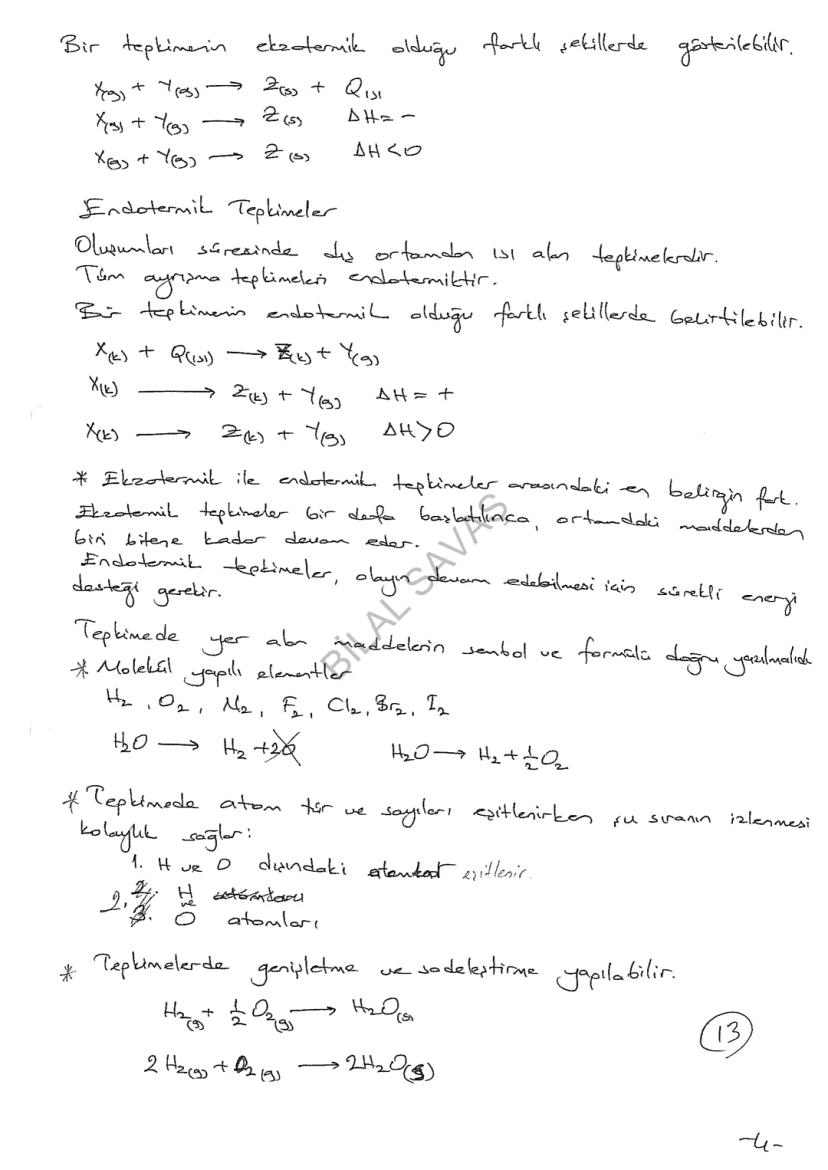 Bir tepkimenin ekzotermik olduğu farklı şekillerde gösterilebilir.
X(g) + Y(g) → Z(s) + Q(ısı
X(g) + Y(g) → Z(s) ΔH = -
X(g) + Y(g) → Z(s) ΔH < 0
Endotermik Tepkimeler
Oluşumları süresinde dış ortamdan ısı alan tepkimelerdir.
Tüm ayrışma tepkimeleri endotermiktir.
Bir tepkimenin endotermik olduğu farklı şekillerde belirtilebilir.
X(k) + Q(ısı) → Z(k) + Y(g)
X(k) → Z(k) + Y(g) ΔH = +
X(k) → Z(k) + Y(g) ΔH > 0
* Ekzotermik ile endotermik tepkimeler arasındaki en belirgin fark.
Ekzotermik tepkimeler bir defa başlatılınca, ortamdaki maddelerden
biri bitene kadar devam eder.
Endotermik tepkimeler, olayın devam edebilmesi için sürekli enerji
desteği gerekir.
Tepkimede yer alan maddelerin sembol ve formülü doğru yazılmalıdır
* Molekül yapılı elementler
H2, O2, N2, F2, Cl2, Br2, I2
H2O → H2 + 2O H2O → H2 + 1/2 O2
* Tepkimede atom tür ve sayıları eşitlenirken şu sıranın izlenmesi
kolaylık sağlar:
1. H ve O dışındaki atomlar eşitlenir.
2. H
ve
O atomları
* Tepkimelerde genişletme ve sadeleştirme yapılabilir.
H2(g) + 1/2 O2(g) → H2O(s)
2H2(g) + O2(g) → 2H2O(s)
13
-4-
BİLAL SAVAŞ